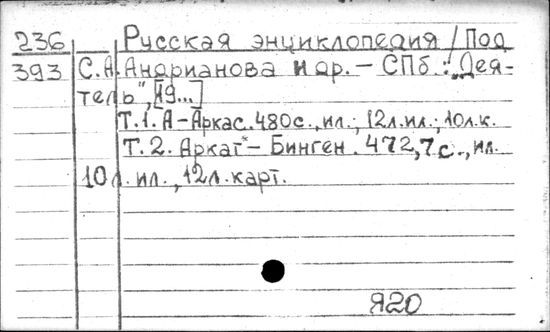 236 Русская энциклопедия / Под
393 С.А. Андрианова и др. – СПб.: „Дея-
тель", [19...]
Т.1. А – Аркас. 480с., ил.; 12л.ил.; 10л.к.
Т.2. Аркат – Бинген. 472,7с., ил.
10л.ил., 12л.карт.
Я20